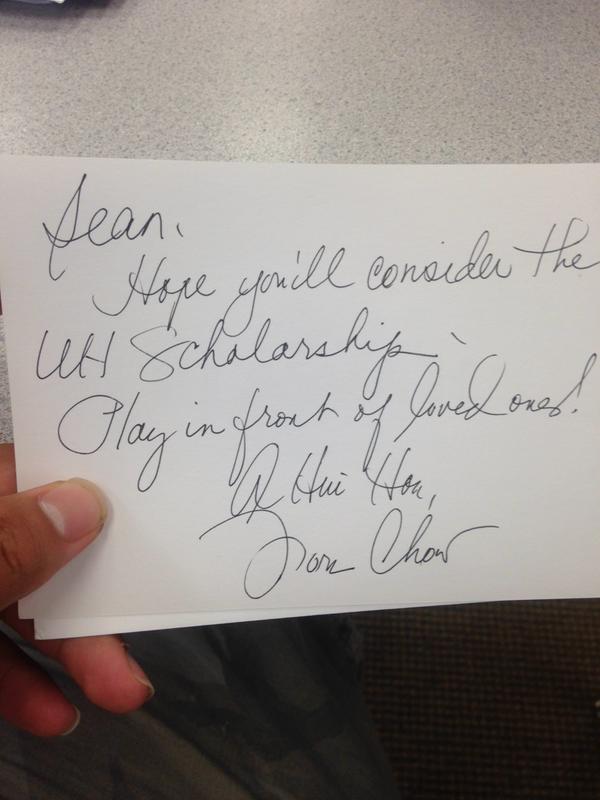 Sean,
Hope you'll consider the
UH Scholarship.
Play in front of loved ones!
A Hui Hou,
Norm Chow